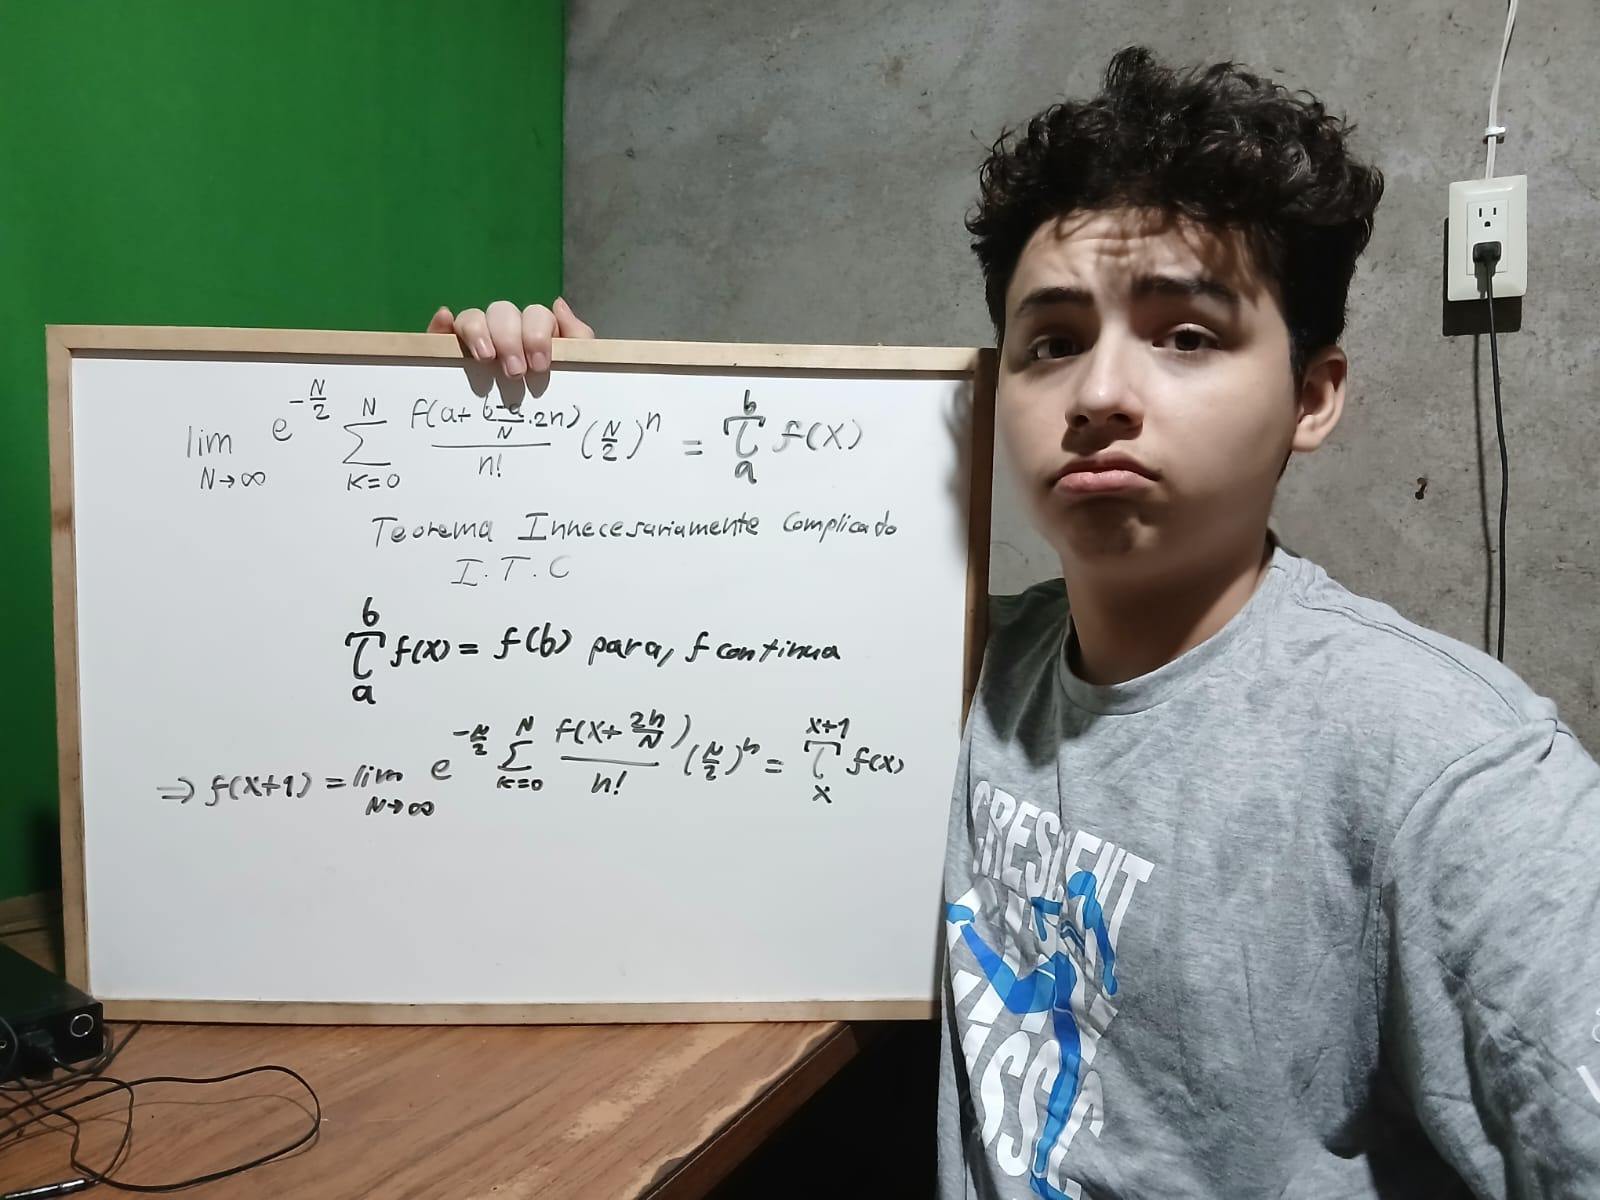 lim N→∞ e^{-N/2} Σ_{K=0}^{N} f(a+ b-a/N ·2n)/n! (N/2)^n = τ_a^b f(x)
Teorema Innecesariamente Complicado
I.T.C
τ_a^b f(x) = f(b) para, f continua
⇒ f(x+1) = lim N→∞ e^{-N/2} Σ_{K=0}^{N} f(x+ 2n/N)/n! (N/2)^n = τ_x^{x+1} f(x)
CRESCENT
CLASSIC